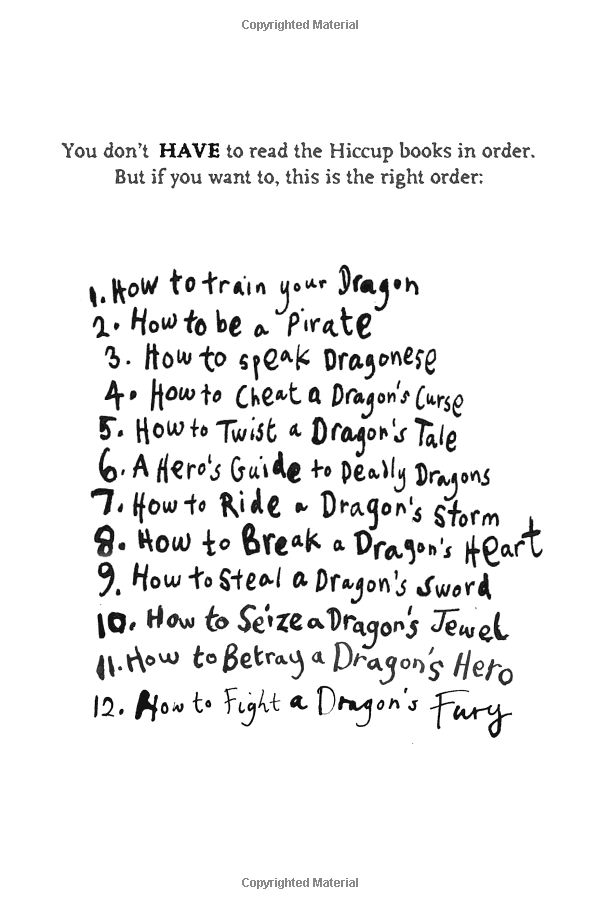 Copyrighted Material
You don't HAVE to read the Hiccup books in order.
But if you want to, this is the right order:
1. How to train your Dragon
2. How to be a Pirate
3. How to speak Dragonese
4. How to Cheat a Dragon's Curse
5. How to Twist a Dragon's Tale
6. A Hero's Guide to Deadly Dragons
7. How to Ride a Dragon's Storm
8. How to Break a Dragon's Heart
9. How to Steal a Dragon's Sword
10. How to Seize a Dragon's Jewel
11. How to Betray a Dragon's Hero
12. How to Fight a Dragon's Fury
Copyrighted Material